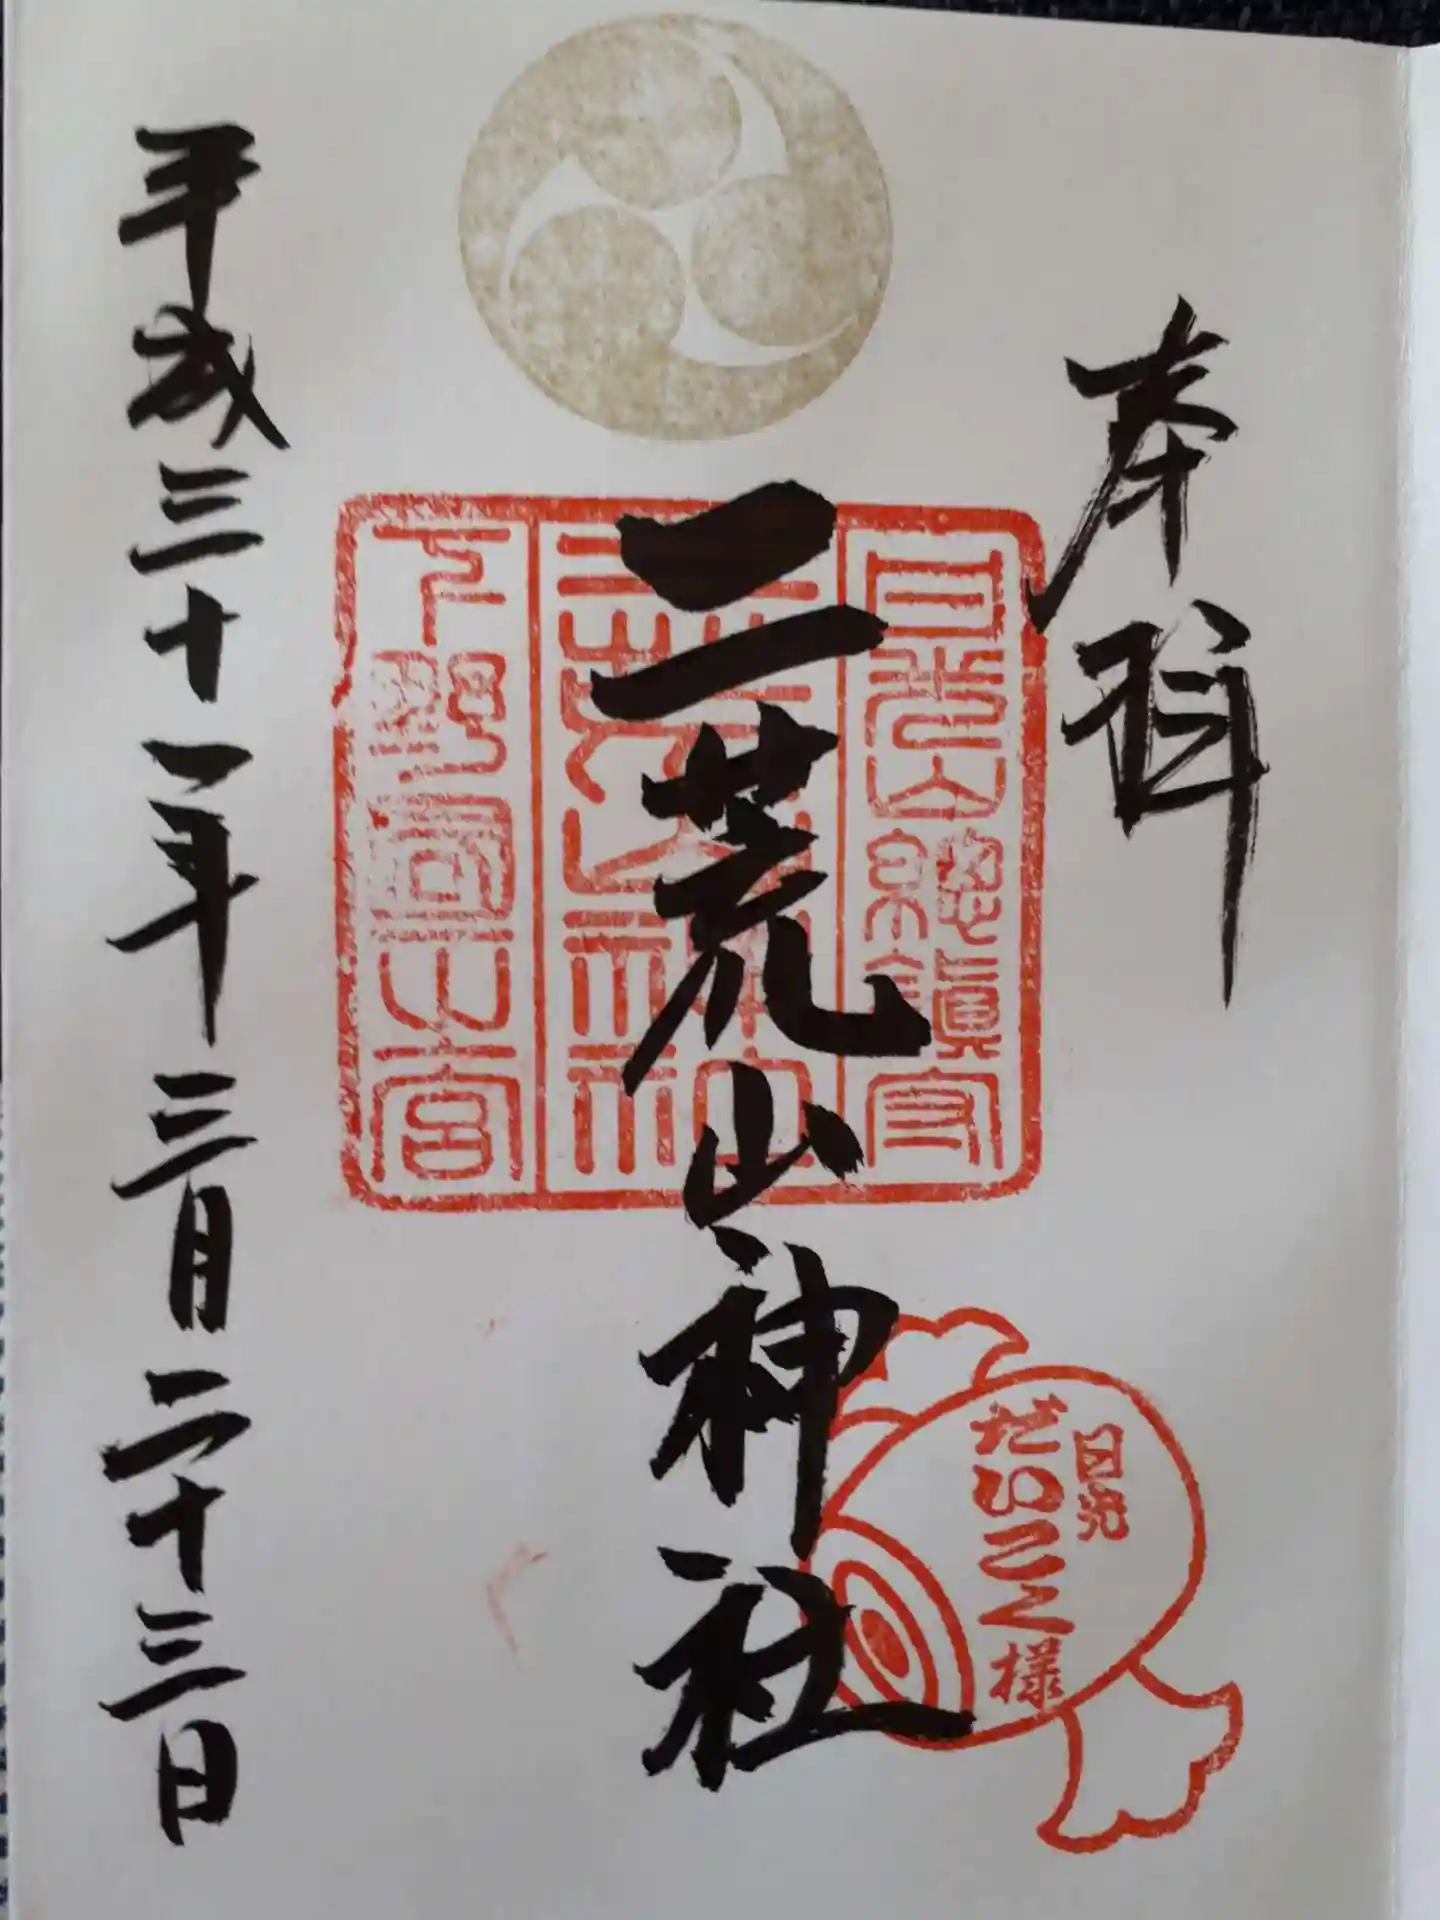 奉拝
日光山総鎮守
二荒山神社
二荒山神社
下野国一之宮
日光
だいこく様
平成三十一年三月二十三日